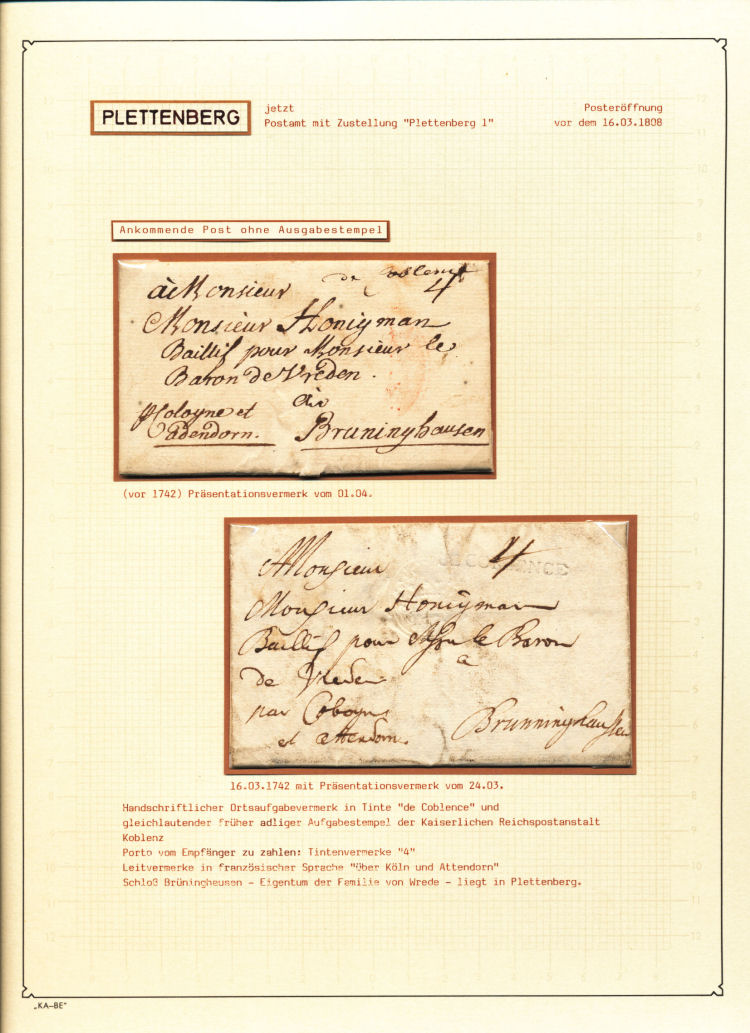 PLETTENBERG
jetzt
Postamt mit Zustellung "Plettenberg 1"
Posteröffnung
vor dem 16.03.1808
Ankommende Post ohne Ausgabestempel
de Coblence
4
à Monsieur
Monsieur Honigman
Baillif pour Monsieur le
Baron de Vreden.
p Cologne et
Adendorn.
Bruninghausen
(vor 1742) Präsentationsvermerk vom 01.04.
4
AMonsieur
Monsieur Honigman
Baillif pour le Baron
de Vreden
a
par Cologne
et attendorn.
Brunninghausen
16.03.1742 mit Präsentationsvermerk vom 24.03.
Handschriftlicher Ortsaufgabevermerk in Tinte "de Coblence" und
gleichlautender früher adliger Aufgabestempel der Kaiserlichen Reichspostanstalt
Koblenz
Porto vom Empfänger zu zahlen: Tintenvermerke "4"
Leitvermerke in französischer Sprache "über Köln und Attendorn"
Schloß Brüninghausen - Eigentum der Familie von Wrede - liegt in Plettenberg.
„KA-BE"